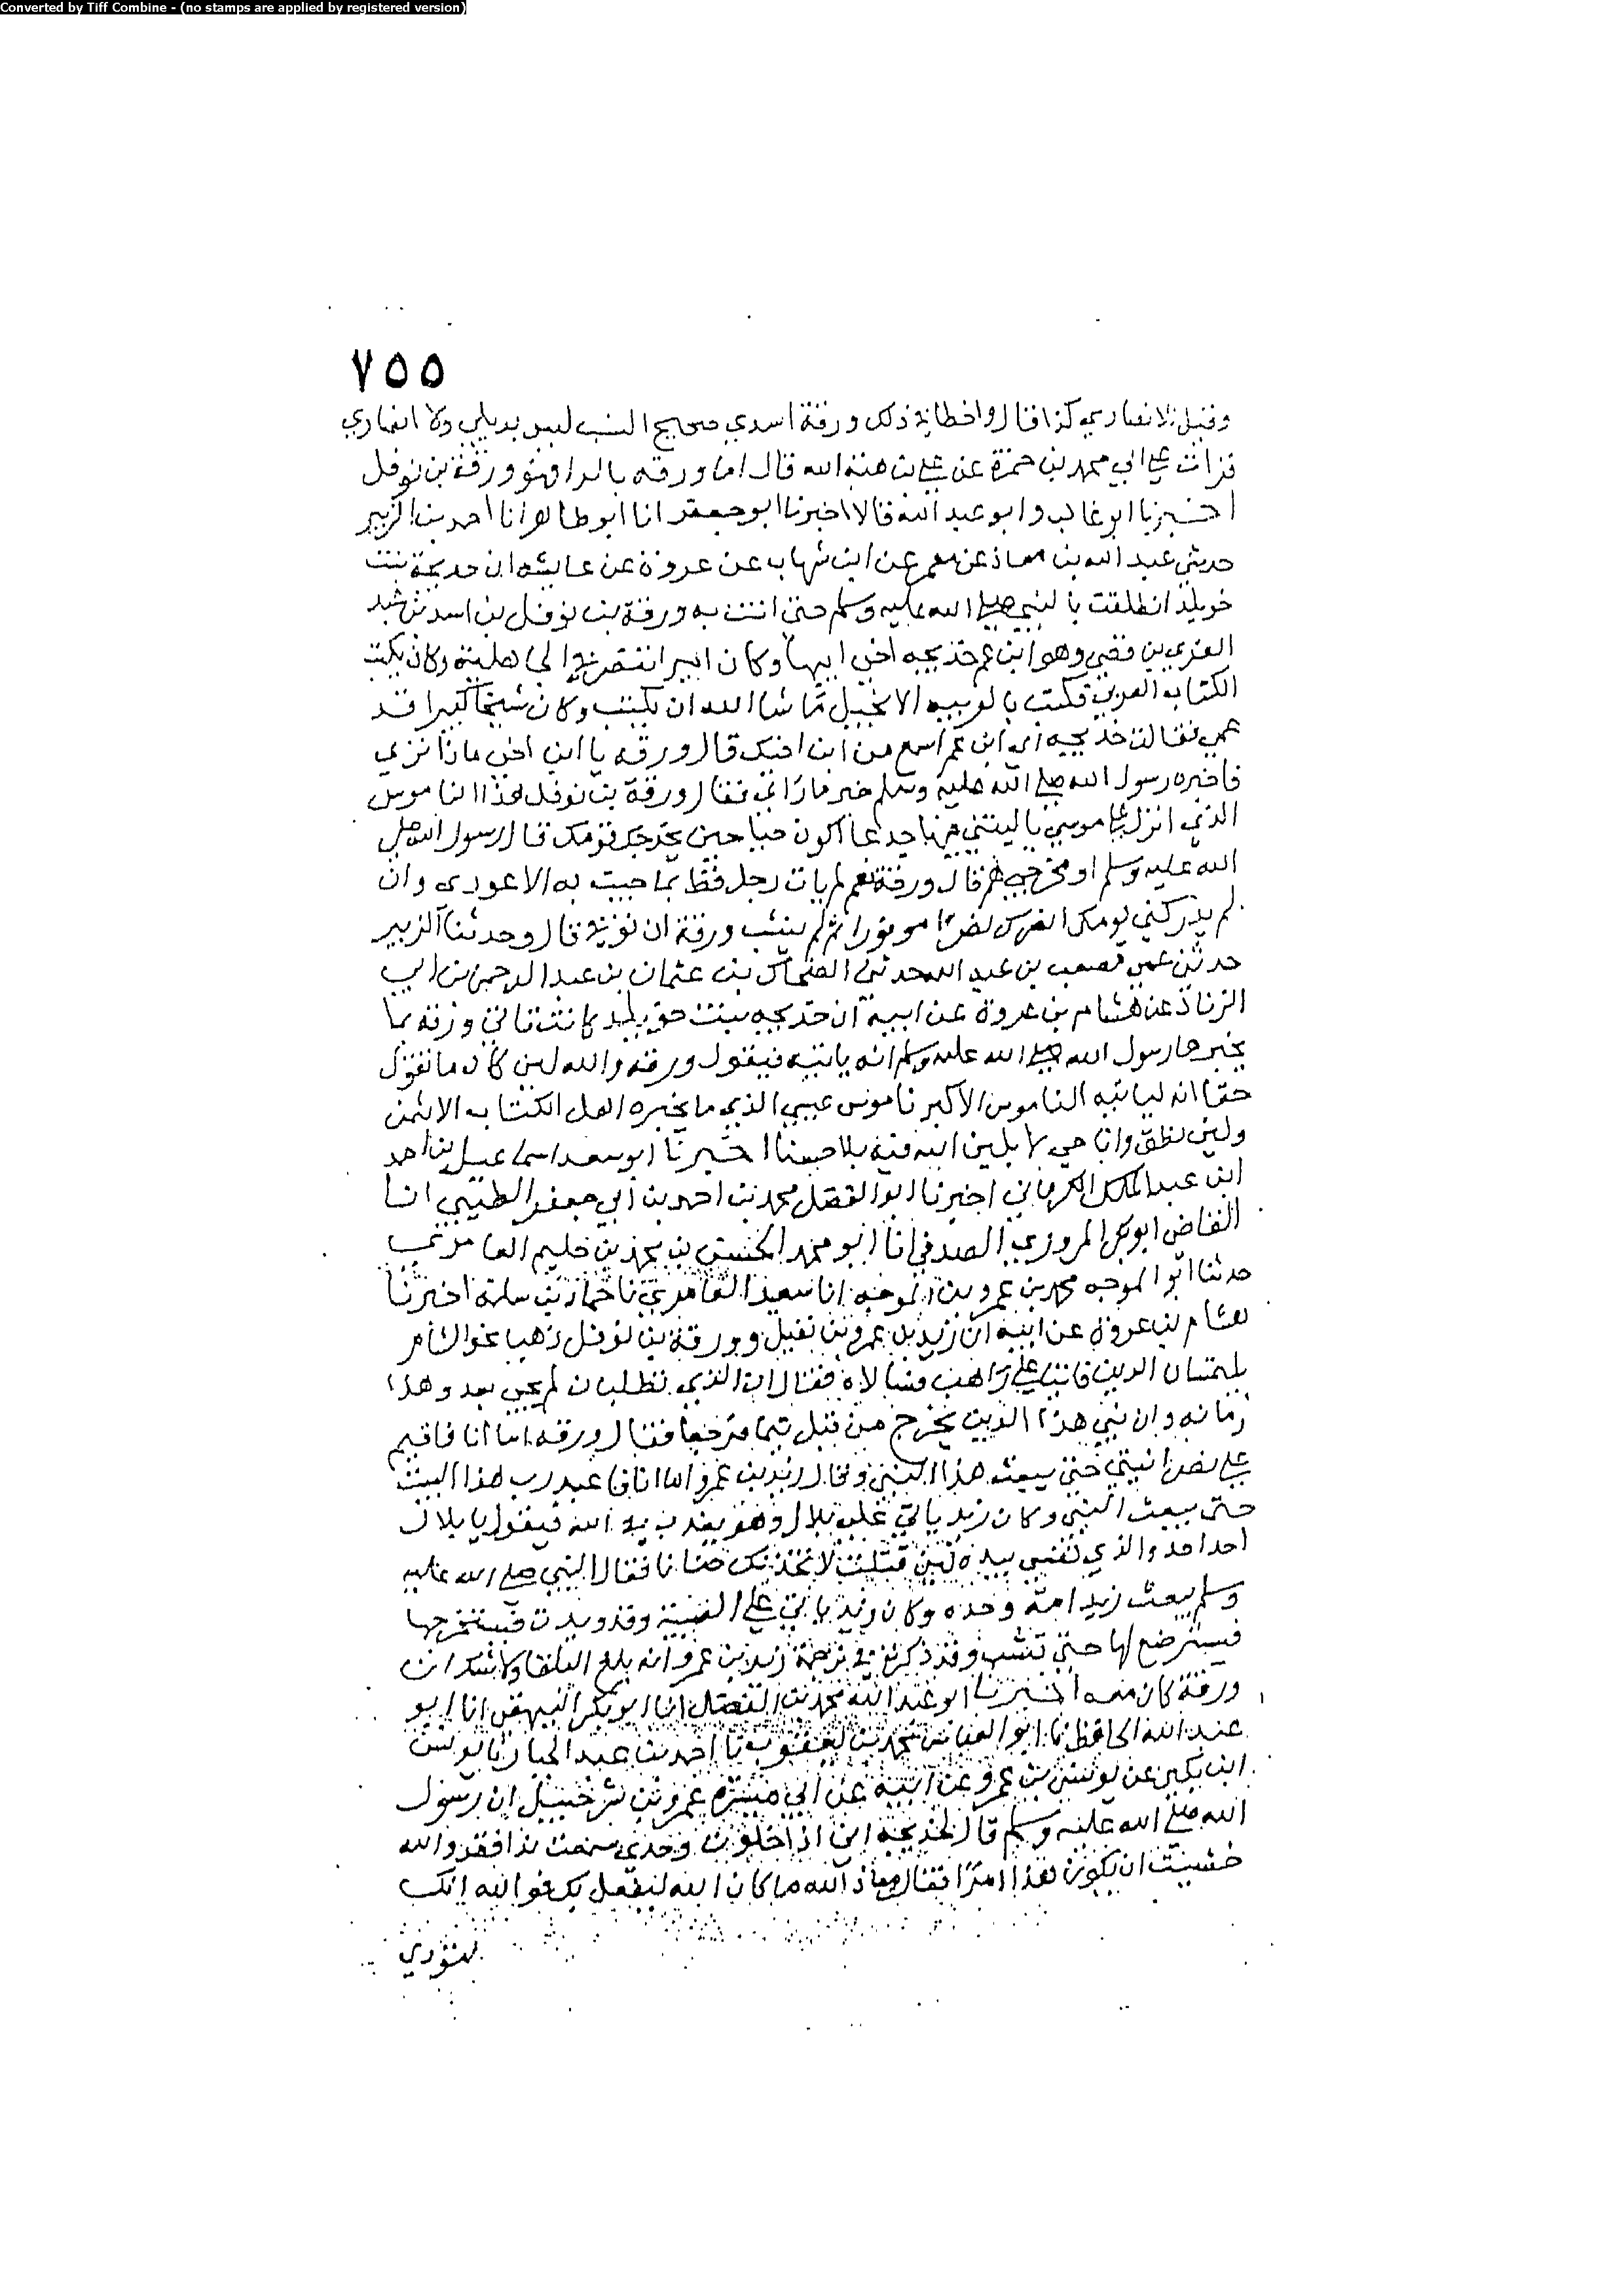 Converted by Tiff Combine - (no stamps are applied by registered version)
٧٥٥
وقيل الانصاري كذا قال واخطا في ذلك ورقة اسدي صحيح النسب ليس بديلي ولا انصاري
قرات علي ابي محمد بن حمزة عن علي بن هبة الله قال اما ورقه بالرا فهو ورقة بن نوفل
اخبرنا ابو غالب وابو عبد الله قالا اخبرنا ابو جعفر انا ابو طاهر انا احمد بن الزبير
حدثني عبد الله بن معاذ عن معمر عن ابن شهاب عن عروة عن عايشه ان خديجة بنت
خويلد انطلقت بالنبي صلي الله عليه وسلم حتي اتت به ورقة بن نوفل بن اسد بن عبد
العزي بن قصي وهو ابن عم خديجه اخي ابيها وكان امير انتصر في الجاهلية وكان يكتب
الكتابه العربي فكتب بالعربيه الانجيل ما شا الله ان يكتب وكان شيخا كبيرا قد
عمي فقالت خديجه اي ابن عم اسمع من ابن اخيك قال ورقه يا ابن اخي ماذا تري
فاخبره رسول الله صلي الله عليه وسلم خبر ما راي فقال ورقة بن نوفل هذا الناموس
الذي انزل علي موسي يا ليتني فيها جدعا اكون حيا حين يخرجك قومك قال رسول الله صلي
الله عليه وسلم او مخرجي هم قال ورقة نعم لم يات رجل قط بما جيت به الا عودي وان
لم يدركني يومك انصرك نصرا موزرا ثم لم ينشب ورقة ان توفي قال وحدثنا الزبير
حدثني عمي مصعب بن عبد الله حدثني الضحاك بن عثمان بن عبد الرحمن بن ابي
الزناد عن هشام بن عروة عن ابيه ان خديجه بنت خويلد كانت تاتي ورقه بما
يخبرها رسول الله صلي الله عليه وسلم انه ياتيه فيقول ورقه والله لين كان ما تقول
حقا انه لياتيه الناموس الاكبر ناموس عيسي الذي ما يخبره اهل الكتاب الا بثمن
ولين نطق وانا حي لابلين الله فيه بلا حسنا اخبرنا ابو سعد اسماعيل بن احمد
ابن عبد الملك الكرماني اخبرنا ابو الفضل محمد بن احمد بن ابي جعفر الطبسي انا
القاضي ابو بكر المروزي الصدفي انا ابو محمد الحسن بن محمد بن حليم العامري
حدثنا ابو الموجه محمد بن عمرو بن الموجه انا سعيد العامري نا حماد بن سلمة اخبرنا
هشام بن عروة عن ابيه ان زيد بن عمرو بن نفيل وورقة بن نوفل ذهبا نحو الشام
يلتمسان الدين فاتيا علي راهب فسالاه فقال ان الذي تطلبان لم يجي بعد وهذا
زمانه وان نبي هذا الدين يخرج من قبل تيما فرجعا فقال ورقه اما انا فاقيم
علي نصرانيتي حتي يبعث هذا النبي وقال زيد بن عمرو اما انا فاعبد رب هذا البيت
حتي يبعث النبي وكان زيد ياتي علي بلال وهو يعذب في الله فيقول يا بلال
احد احد والذي نفسي بيده لين قتلت لاتخذنك حنانا فقال النبي صلي الله عليه
وسلم يبعث زيد امة وحده وكان زيد ياتي علي الصبية وقد ويدت فيستخرجها
فيسترضع لها حتي تشب وقد ذكرنا في ترجمة زيد بن عمرو انه بلغ البلقا ولا شك ان
ورقة كان معه اخبرنا ابو عبد الله محمد بن الفضل انا ابو بكر البيهقي انا ابو
عبد الله الحافظ نا ابو العباس محمد بن يعقوب نا احمد بن عبد الجبار نا يونس
ابن بكير عن يونس بن عمرو عن ابيه عن ابي ميسرة عمرو بن شرحبيل ان رسول
الله صلي الله عليه وسلم قال لخديجه اني اذا خلوت وحدي سمعت ندا فقد والله
خشيت ان يكون هذا امرا فقال معاذ الله ما كان الله ليفعل بك فو الله انك
لتودي